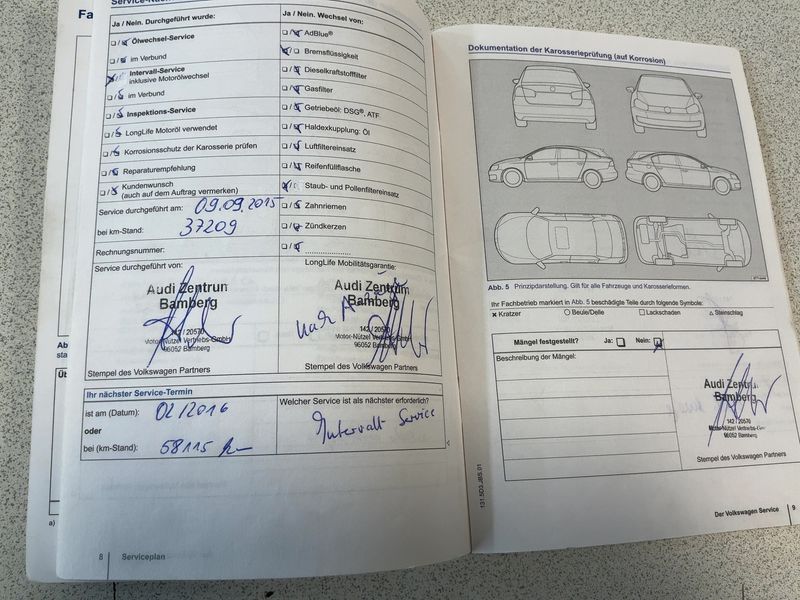 Fa
Service-Nach
Ja / Nein. Durchgeführt wurde:
/ Ölwechsel-Service
/ im Verbund
Intervall-Service
inklusive Motorölwechsel
/ im Verbund
/ Inspektions-Service
/ LongLife Motoröl verwendet
/ Korrosionsschutz der Karosserie prüfen
/ Reparaturempfehlung
/ Kundenwunsch
(auch auf dem Auftrag vermerken)
Service durchgeführt am: 09.09.2015
bei km-Stand: 37209
Rechnungsnummer:
Service durchgeführt von:
Audi Zentrum
Bamberg
142 / 20570
Motor-Nützel Vertriebs-GmbH
96052 Bamberg
Stempel des Volkswagen Partners
Ja / Nein. Wechsel von:
/ AdBlue®
/ Bremsflüssigkeit
/ Dieselkraftstofffilter
/ Gasfilter
/ Getriebeöl: DSG®, ATF
/ Haldexkupplung: Öl
/ Luftfiltereinsatz
/ Reifenfüllflasche
/ Staub- und Pollenfiltereinsatz
/ Zahnriemen
/ Zündkerzen
/ ....................
LongLife Mobilitätsgarantie:
Audi Zentrum
Bamberg
nach
142 / 20570
Motor-Nützel Vertriebs-GmbH
96052 Bamberg
Stempel des Volkswagen Partners
Ihr nächster Service-Termin
ist am (Datum): 02/2016
oder
bei (km-Stand): 58115 km
Welcher Service ist als nächster erforderlich?
Intervall Service
a)
8 Serviceplan
Dokumentation der Karosserieprüfung (auf Korrosion)
Abb. 5 Prinzipdarstellung. Gilt für alle Fahrzeuge und Karosserieformen.
Ihr Fachbetrieb markiert in Abb. 5 beschädigte Teile durch folgende Symbole:
× Kratzer ○ Beule/Delle □ Lackschaden △ Steinschlag
Mängel festgestellt? Ja: Nein:
Beschreibung der Mängel:
Audi Zentrum
Bamberg
142 / 20570
Motor-Nützel Vertriebs-GmbH
96052 Bamberg
Stempel des Volkswagen Partners
131.5D3.JBS.01
Der Volkswagen Service 9